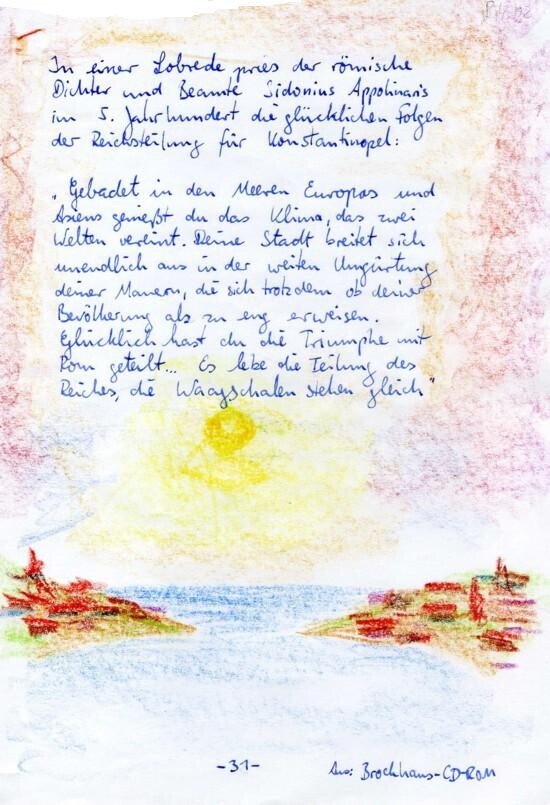 In einer Lobrede pries der römische
Dichter und Beamte Sidonius Appolinaris
im 5. Jahrhundert die glücklichen Folgen
der Reichsteilung für Konstantinopel:
„Gebadet in den Meeren Europas und
Asiens genießt du das Klima, das zwei
Welten vereint. Deine Stadt breitet sich
unendlich aus in der weiten Umgürtung
deiner Mauern, die sich trotzdem ob deiner
Bevölkerung als zu eng erweisen.
Glücklich hast du die Triumphe mit
Rom geteilt... Es lebe die Teilung des
Reiches, die Waagschalen stehen gleich"
-31-
Aus: Brockhaus-CD-ROM